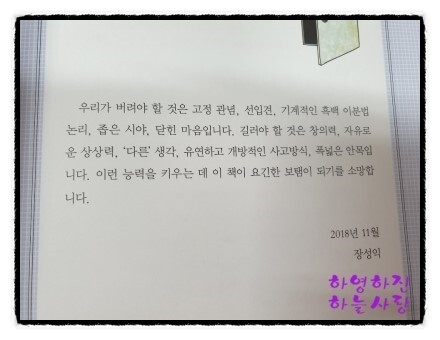 우리가 버려야 할 것은 고정 관념, 선입견, 기계적인 흑백 이분법
논리, 좁은 시야, 닫힌 마음입니다. 길러야 할 것은 창의력, 자유로
운 상상력, '다른' 생각, 유연하고 개방적인 사고방식, 폭넓은 안목입
니다. 이런 능력을 키우는 데 이 책이 요긴한 보탬이 되기를 소망합
니다.
2018년 11월
장성익
하영하진
하늘사랑